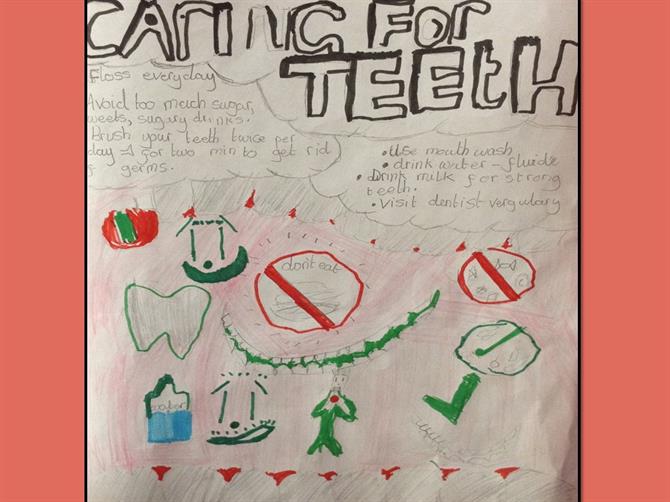 CARING FOR
TEETH
Floss everyday
Avoid too much sugar,
weets, sugary drinks.
Brush your teeth twice per
day for two min to get rid
germs.
• Use mouth wash
• drink water - fluide
• Drink milk for strong
teeth.
• Visit dentist vergulary
don't eat
water